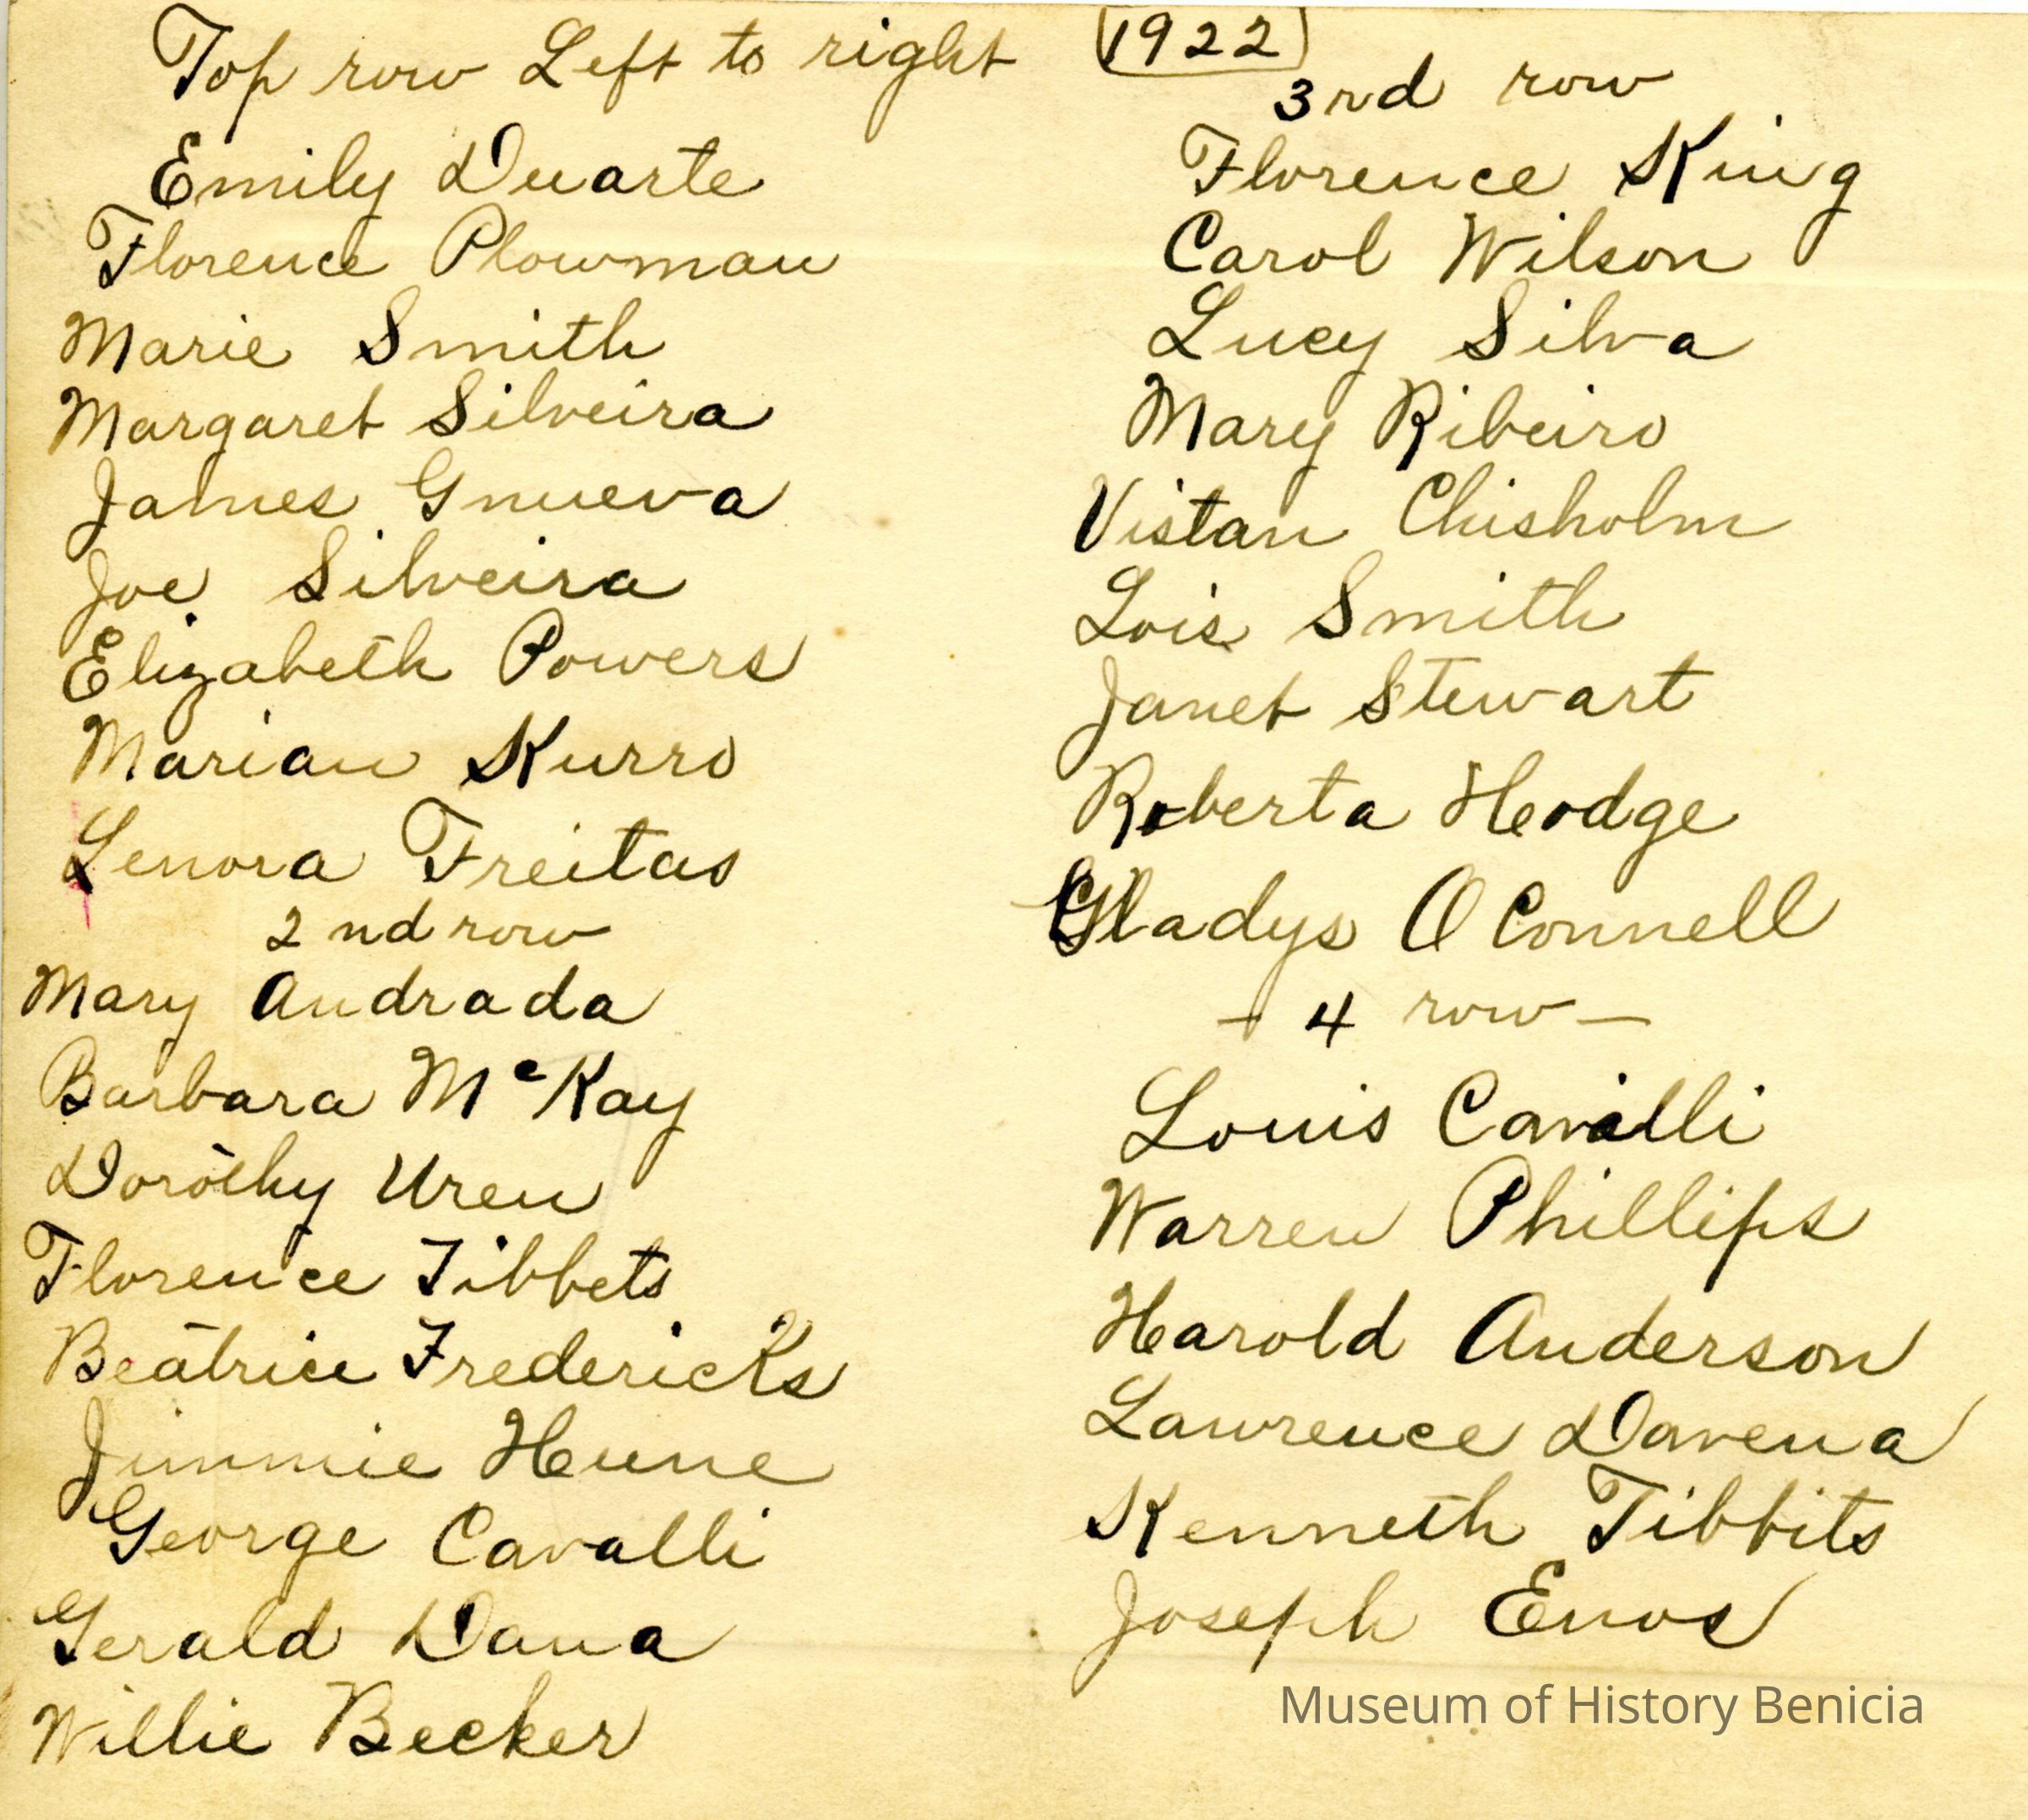 Top row Left to right
Emily Duarte
Florence Plowman
Marie Smith
Margaret Silveira
James Gnueva
Joe Silveira
Elizabeth Powers
Marian Kurro
Lenora Freitas
2nd row
Mary Andrada
Barbara McKay
Dorothy Uren
Florence Tibbets
Beatrice Fredericks
Jimmie Hune
George Cavalli
Gerald Dana
Willie Becker
1922
3rd row
Florence King
Carol Wilson
Lucy Silva
Mary Ribeiro
Vistan Chisholm
Lois Smith
Janet Stewart
Roberta Hodge
Gladys O Connell
- 4 row -
Louis Cavalli
Warren Phillips
Harold Anderson
Lawrence Davena
Kenneth Tibbits
Joseph Enos
Museum of History Benicia